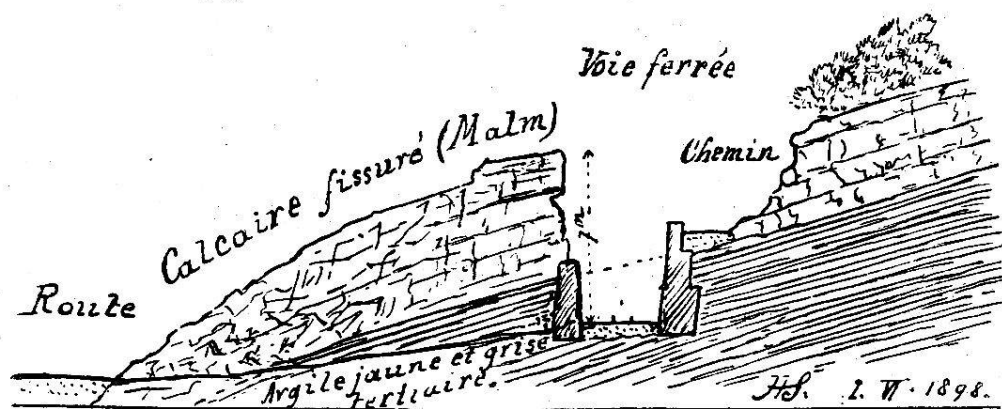 Voie ferrée
Calcaire fissuré (Malm)
Chemin
7 m
Route
Argile jaune et grise
tertiaire.
HS. 2. VI. 1898.